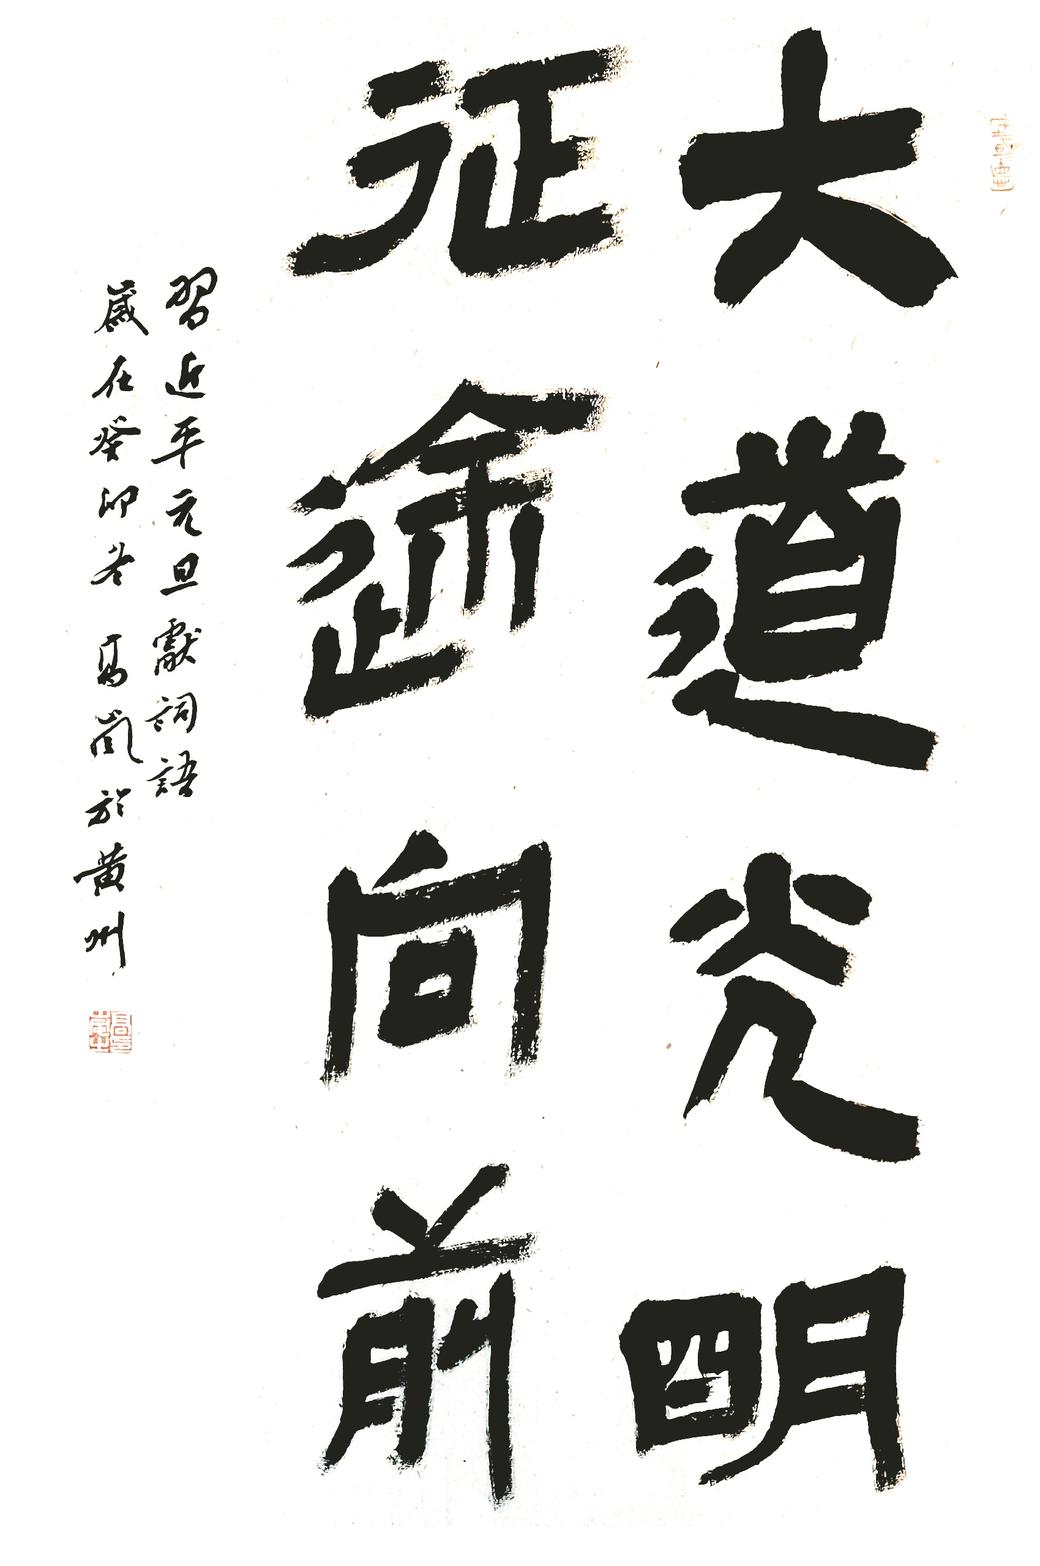 大道光明
征途向前
習近平元旦獻詞語
歲在癸卯 高嵐於黄州